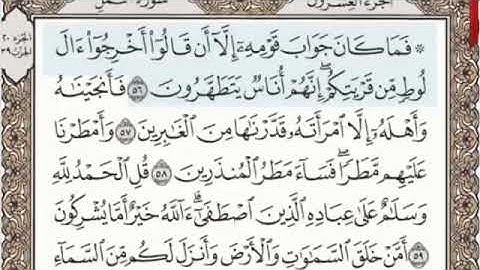 الجزء العشرون
سورة النمل
* فَمَا كَانَ جَوَابَ قَوْمِهِۦٓ إِلَّآ أَن قَالُوٓا۟ أَخْرِجُوٓا۟ ءَالَ
لُوطٍ مِّن قَرْيَتِكُمْ ۖ إِنَّهُمْ أُنَاسٌ يَتَطَهَّرُونَ ٥٦ فَأَنجَيْنَٰهُ
وَأَهْلَهُۥٓ إِلَّا ٱمْرَأَتَهُۥ قَدَّرْنَٰهَا مِنَ ٱلْغَٰبِرِينَ ٥٧ وَأَمْطَرْنَا
عَلَيْهِم مَّطَرًا ۖ فَسَآءَ مَطَرُ ٱلْمُنذَرِينَ ٥٨ قُلِ ٱلْحَمْدُ لِلَّهِ
وَسَلَٰمٌ عَلَىٰ عِبَادِهِ ٱلَّذِينَ ٱصْطَفَىٰٓ ۗ ءَآللَّهُ خَيْرٌ أَمَّا يُشْرِكُونَ
٥٩ أَمَّنْ خَلَقَ ٱلسَّمَٰوَٰتِ وَٱلْأَرْضَ وَأَنزَلَ لَكُم مِّنَ ٱلسَّمَآءِ